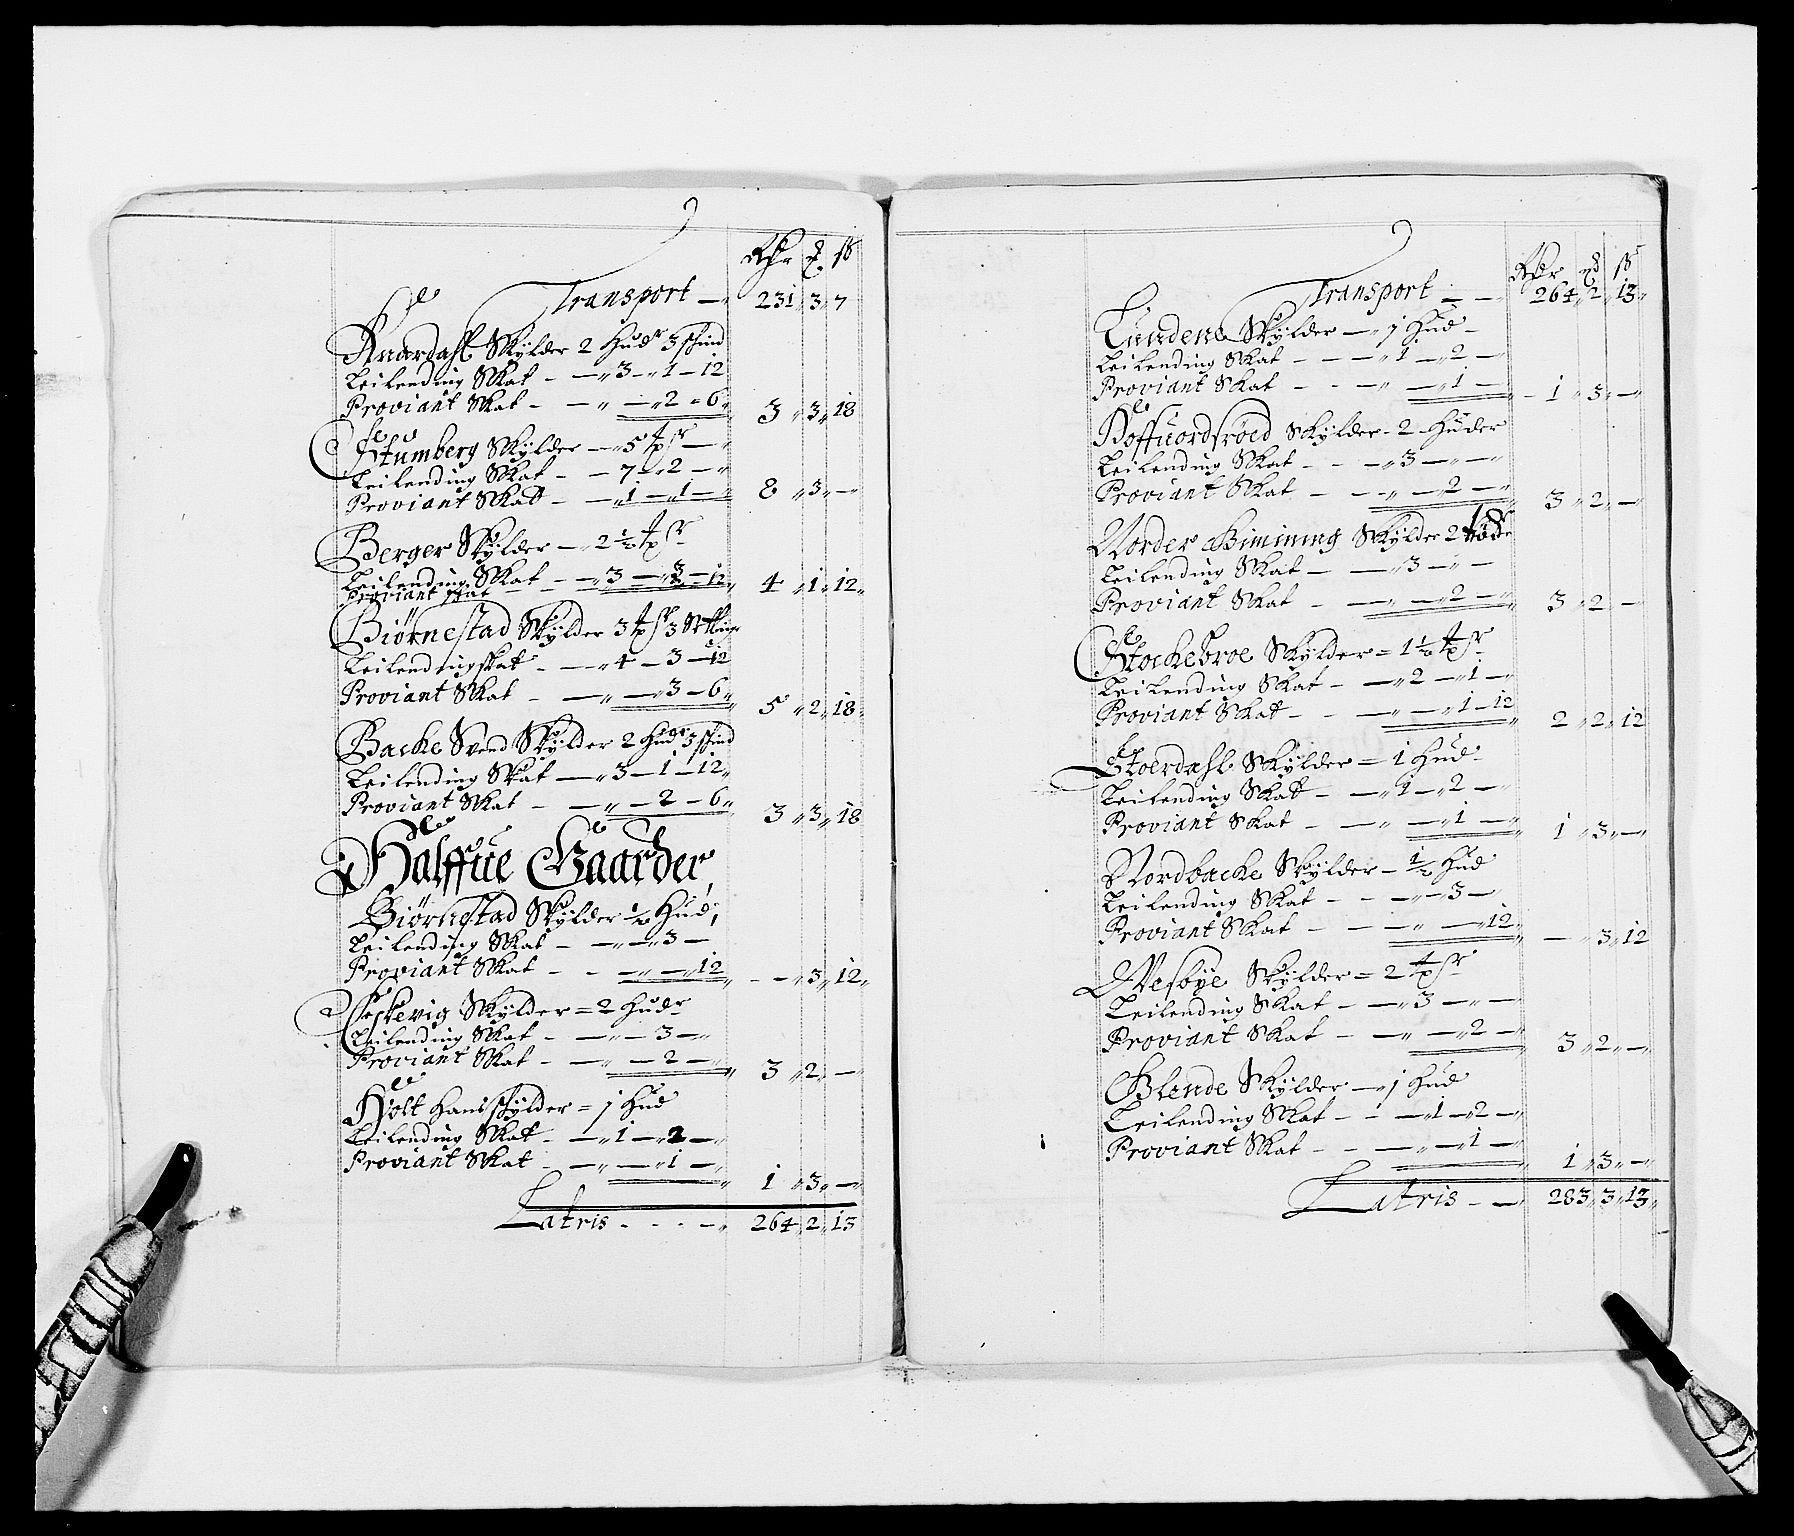 Rdr ß
Transport — 231 3 7
Knardahl Skylder 2 Hudr 3 skind
Leilending Skat - — 3 — 1 — 12
Proviant Skat - — „ — 2 - 6 3 „ 3 „ 18
Stumberg Skylder — 5
Leilending Skat - — 7 — 2 —
Proviant Skatt - — 1 — 1 — 8 „ 3 „ —
Berger Skylder — 2 ½
Leilending Skat - — 3 — 3 — 12 4 „ 1 „ 12
Proviant skat - - -
Biørnestad Skylder 3 3
Leilendingskat - — 4 — 3 — 12
Proviant Skat - — „ — 3 — 6 5 „ 2 „ 18
Backe Svend Skylder 2 Hudr 3 skind
Leilending Skat — 3 — 1 — 12
Proviant Skat - — „ — 2 — 6 3 „ 3 „ 18
Halffue Gaarder
Biørnstad Skylder ½ Hud
Leilending Skat - — „ — 3 —
Proviant Skat - - — „ — „ 12 - — „ 3 „ 12
Eskevig Skylder = 2 Hudr
Leilending Skat - — „ — 3 —
Proviant Skat - — „ — 2 — 3 „ 2 „ —
Holt Hans skylder = j Hud
Leilending Skat - — 1 — 2 —
Proviant Skat - — „ — 1 — 1 „ 3 „ —
Latris - - - — 264 „ 2 „ 13
Rdr ß
Transport — — 264 „ 2 „ 13
Lundene Skylder — j Hud -
Leilending Skat - — — 1 — 2 —
Proviant Skat - - — „ — 1 — - 1 „ 3 „ —
Hoffuordsrøed Skylder - 2 - Huder
Leilending Skat - - — 3 — „ —
Proviant Skat - — „ — 2 — 3 „ 2 „ —
Norder Bimining Skylder 2
Leilending Skat — — 3 — „ —
Proviant Skat - — „ — 2 — 3 „ 2 „ —
Stockebroe Skylder = 1 ½
Leilending Skat - — 2 — 1 —
Proviant Skatt - - — „ — 1 — 12 2 „ 2 „ 12
Stoerdahl Skylder = 1 Hud -
Leilending Skatt - — 1 — 2 —
Proviant Skat - — „ — 1 — 1 „ 3 „ —
Nordbacke Skylder — ½ Hud
Leilending Skat - - — „ — 3 —
Proviant Skat - - — „ — 12 — „ 3 „ 12
Wesbye Skylder = 2
Leilending Skat - — 3 — „ —
Proviant Skat - — „ — 2 — 3 „ 2 „ —
Blende Skylder — j Hud
Leilending Skat - - — 1 — 2 —
Proviant Skat - - — „ — 1 — 1 „ 3 „ —
Latris — — 283 „ 3 „ 13